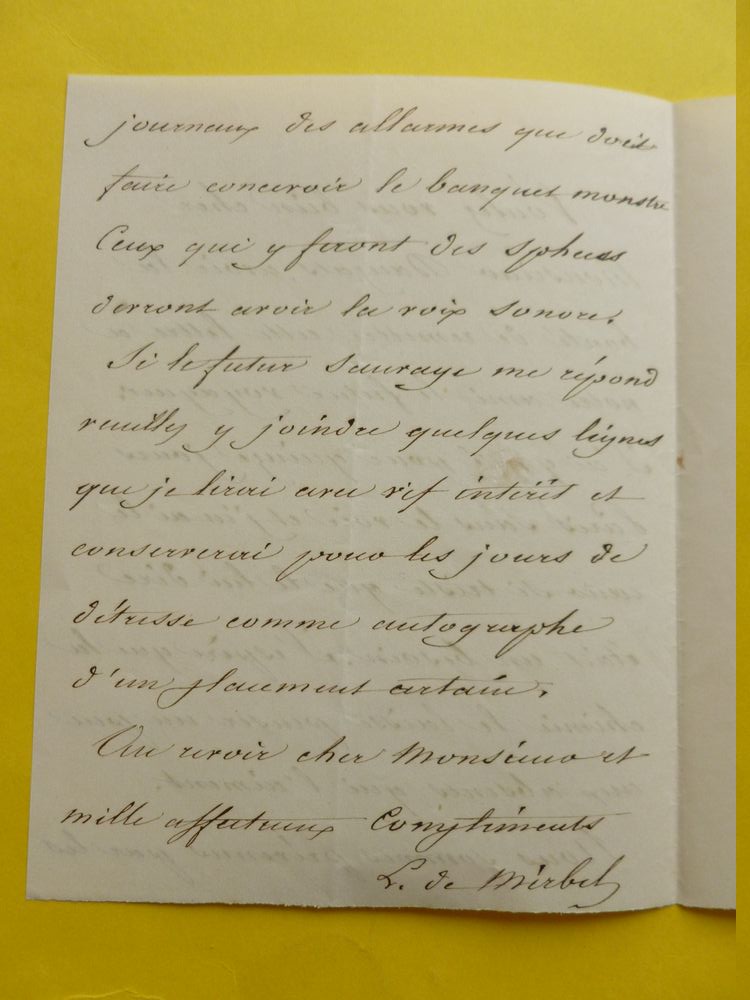 journaux des allarmes que doit
faire concevoir le banquet monstre
Ceux qui y feront des spheess
devront avoir la voix sonore.
Si le futur Sauvage me répond
veuillez y joindre quelques lignes
que je lirai avec vif intérêt et
conserverai pour les jours de
détresse comme autographe
d'un placement certain.
Au revoir cher Monsieur et
mille affectueux Compliments
L. de Mirbel